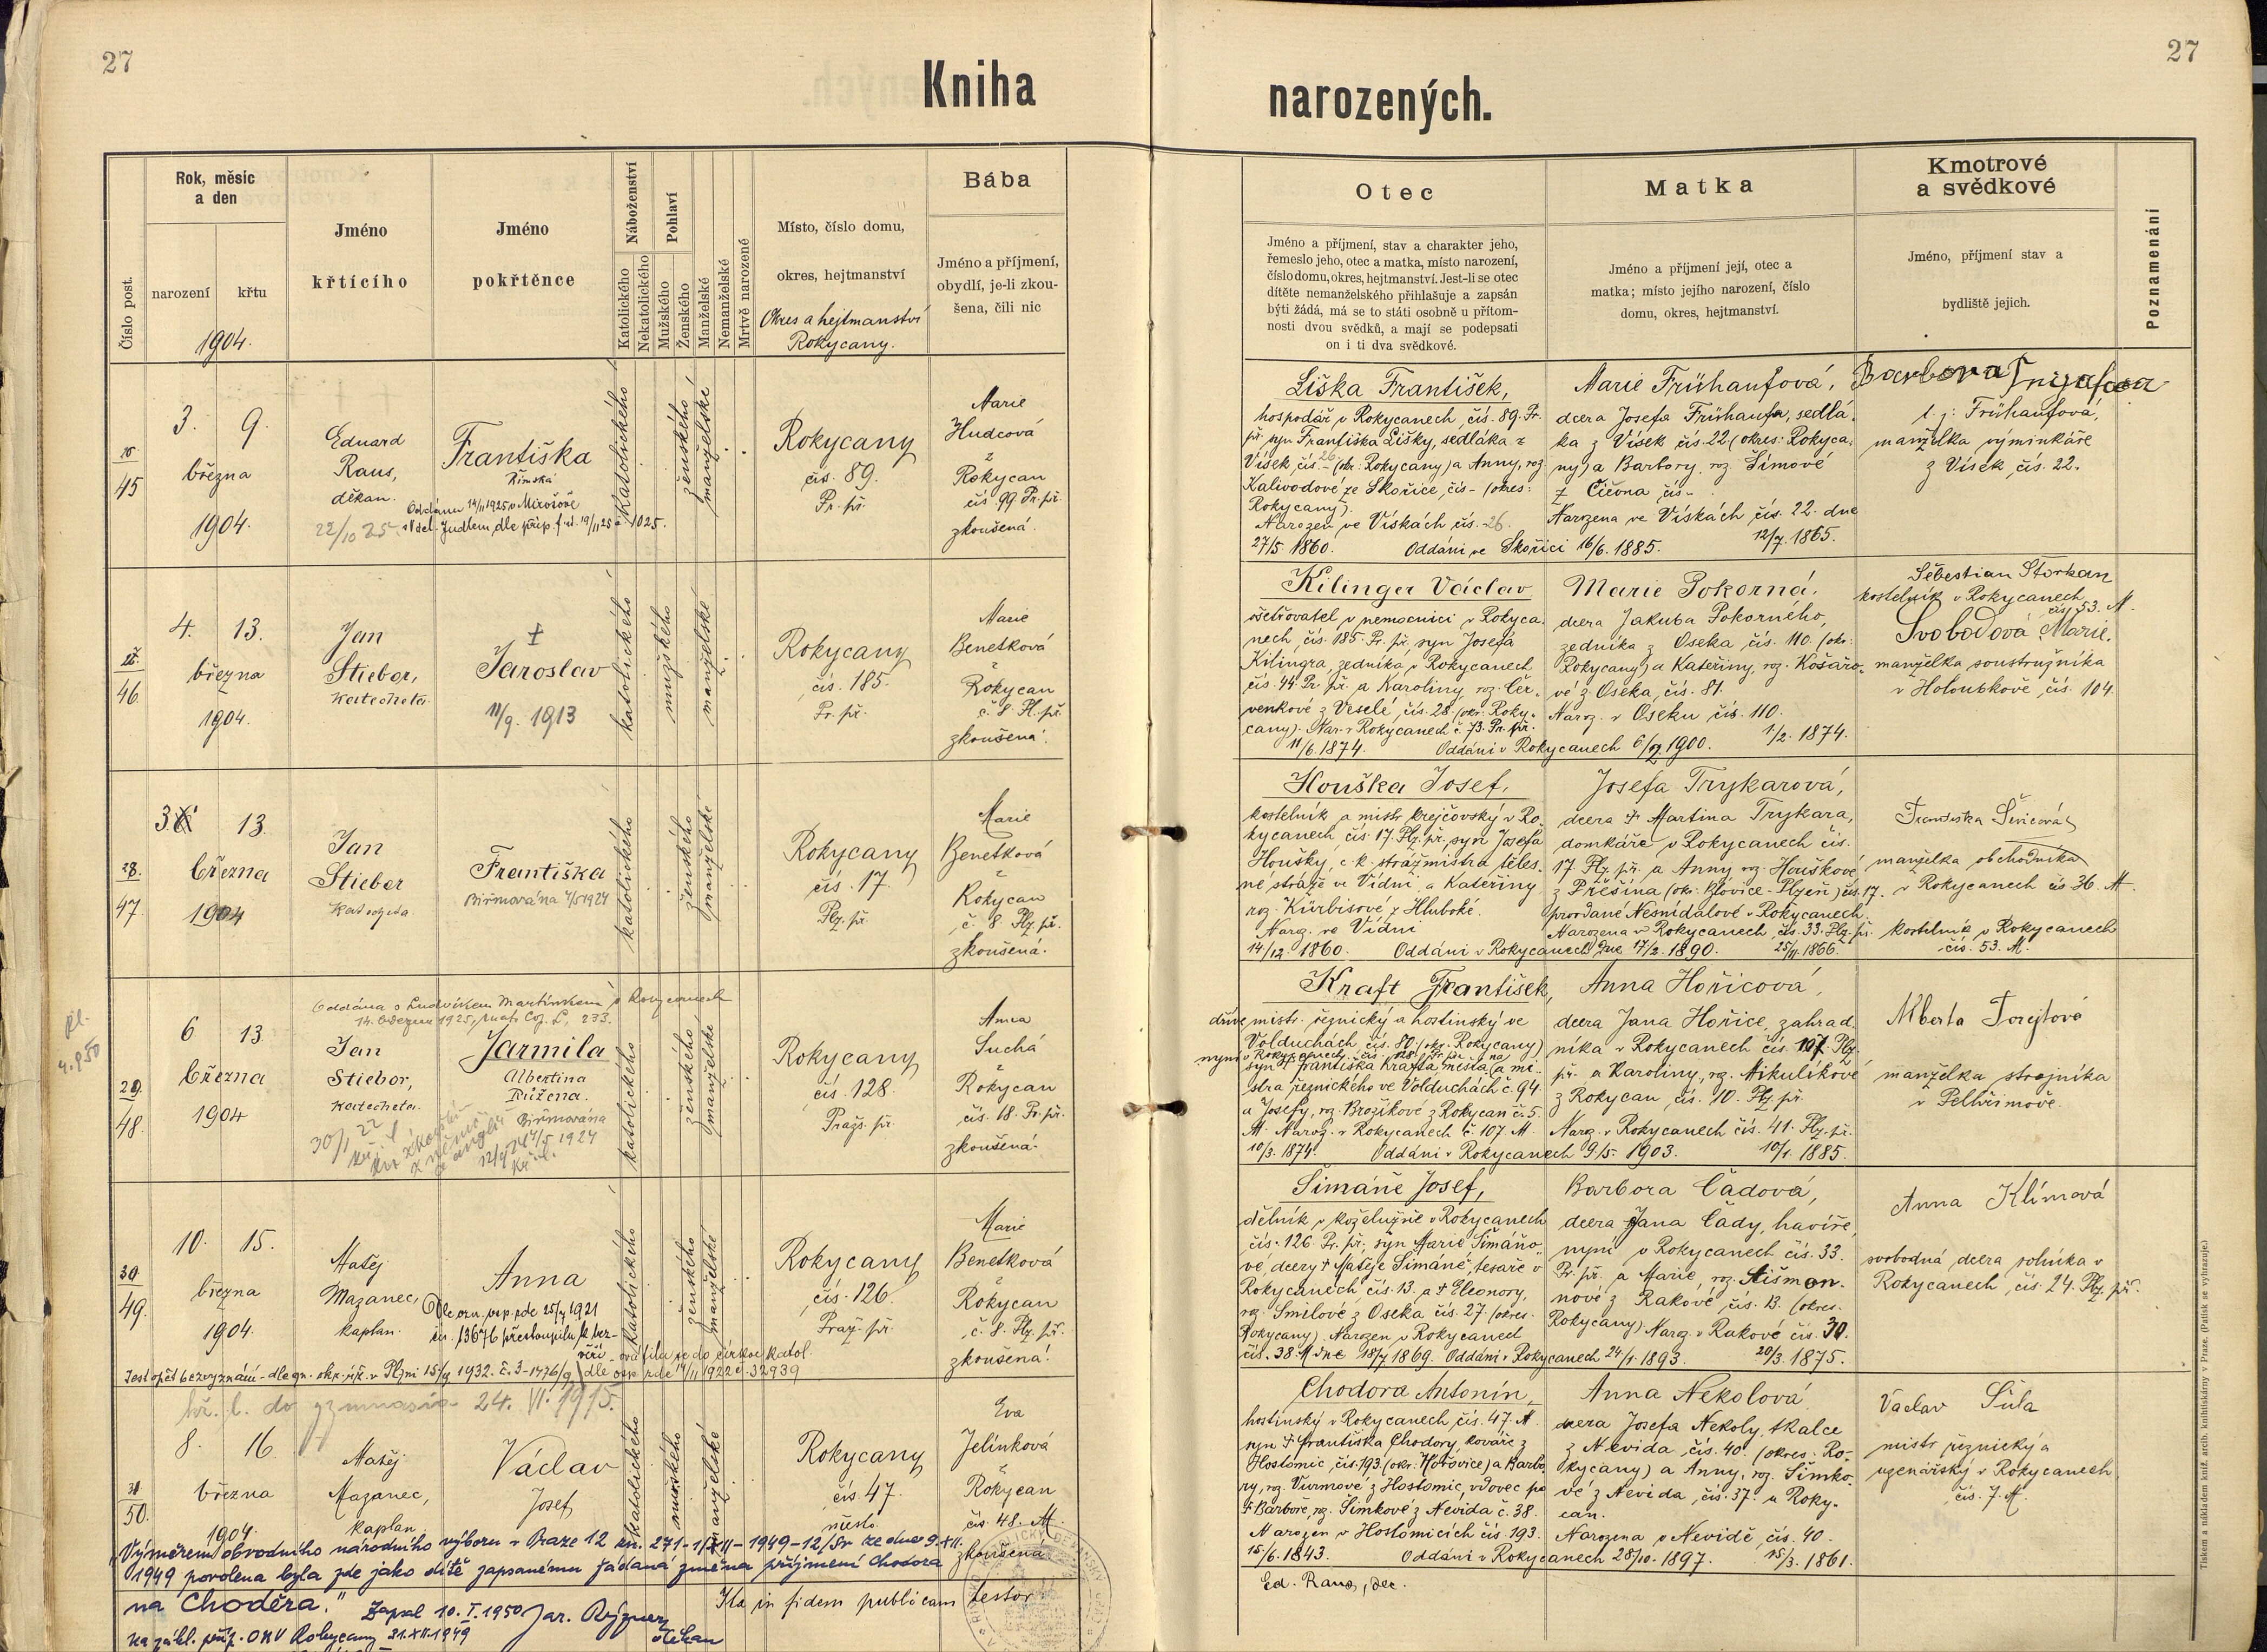 27
27
Kniha
narozených.
Číslo post.
Rok, měsíc
a den
narození
křtu
1904.
Jméno
křtícího
Jméno
pokřtěnce
Náboženství
Katolického
Nekatolického
Pohlaví
Mužského
Ženského
Manželské
Nemanželské
Mrtvě narozené
Místo, číslo domu,
okres, hejtmanství
Okres a hejtmanství
Rokycany.
Bába
Jméno a příjmení,
obydlí, je-li zkou-
šena, čili nic
Otec
Jméno a příjmení, stav a charakter jeho,
řemeslo jeho, otec a matka, místo narození,
číslo domu, okres, hejtmanství. Jest-li se otec
dítěte nemanželského přihlašuje a zapsán
býti žádá, má se to státi osobně u přítom-
nosti dvou svědků, a mají se podepsati
on i ti dva svědkové.
Matka
Jméno a příjmení její, otec a
matka; místo jejího narození, číslo
domu, okres, hejtmanství.
Kmotrové
a svědkové
Jméno, příjmení stav a
bydliště jejich.
Poznamenání
45
3. 9.
března
1904.
Eduard
Raus,
děkan.
22/10 25.
Františka
Římská
Oddána 14/11 1925 v Mirošově
katolického
ženského
manželské
Rokycany
čís. 89.
Pr. př.
Marie
Hudcová
z
Rokycan
čís 99 Pr. př.
zkoušená.
Liška František,
hospodář v Rokycanech, čís. 89. Pr.
př. syn Františka Lišky, sedláka z
Vísek čís. 26 (okr. Rokycany) a Anny, roz.
Kalivodové ze Skořice, čís - (okres:
Rokycany).
Narozen ve Vískách čís. 26.
27/5 1860. Oddáni ve Skořici 16/6. 1885.
Marie Frühaufová,
dcera Josefa Frühaufa, sedlá-
ka z Vísek čís. 22 (okres: Rokyca-
ny) a Barbory, roz. Šímové
z Čičova čís -
Narozena ve Vískách čís. 22. dne
12/7. 1865.
Barbora
t. j. Frühaufová,
manželka výminkáře
z Vísek, čís. 22.
46.
4. 13.
března
1904.
Jan
Stiebor,
katecheta.
†
Jaroslav
11/9. 1913
katolického
mužského
manželské
Rokycany
čís. 185.
Pr. př.
Marie
Benetková
z
Rokycan
č. 8 Pl. př.
zkoušená.
Kilinger Václav
ošetřovatel v nemocnici v Rokyca-
nech, čís. 185. Pr. př. syn Josefa
Kilingra, zedníka v Rokycanech
čís. 44. Pr. př. a Karoliny, roz. Čer-
venkové z Veselé, čís. 28. (okr. Roky-
cany). Nar. v Rokycanech č. 73. Pr. př.
11/6. 1874. Oddáni v Rokycanech 6/2. 1900.
Marie Pokorná.
dcera Jakuba Pokorného,
zedníka z Oseka, čís. 110. (okr:
Rokycany) a Kateřiny, roz. Košařo-
vé z Oseka, čís. 81.
Naroz. v Oseku čís. 110.
1/2. 1874.
Šebestian Štorkan
kostelník v Rokycanech
čís. 53. M.
Svobodová Marie,
manželka soustružníka
v Holoubkově, čís. 104.
28.
47.
3. 13.
března
1904
Jan
Stiebor
katecheta
Františka
Biřmována 4/5 1924
katolického
ženského
manželské
Rokycany
čís. 17.
Plz. př.
Marie
Benetková
z
Rokycan
č. 8. Plz. př.
zkoušená.
Houška Josef,
kostelník a mistr krejčovský v Ro-
kycanech, čís. 17. Plz. př., syn Josefa
Houšky, c. k. strážmistra těles-
né stráže ve Vídni, a Kateřiny
roz. Kürbisové, z Hluboké.
Naroz. ve Vídni
14/12. 1860. Oddáni v Rokycanech dne 17/2. 1890.
Josefa Trykarová,
dcera † Martina Trykara,
domkáře v Rokycanech čís.
17. Plz. př. a Anny, roz. Houškové
z Příšína (okr. Blovice - Plzeň) čís. 17.
provdané Nesnídalové v Rokycanech.
Narozena v Rokycanech, čís. 33. Plz. př.
25/11. 1866.
Františka
manželka obchodníka
v Rokycanech čís 36. M.
kostelník v Rokycanech
čís. 53. M.
29.
48.
Oddána s Ludvíkem Martínkem v Rokycanech
14. března 1925,
6 13.
března
1904
Jan
Stiebor,
katecheta.
30/1 22
Jarmila
Albertina
Růžena.
Biřmována
4/5 1924
katolického
ženského
manželské
Rokycany
čís. 128.
Praž. př.
Anna
Suchá
z
Rokycan
čís. 18. Pr. př.
zkoušená.
Kraft František,
dříve mistr řeznický a hostinský ve
Volduchách, čís. 80. (okr. Rokycany)
nyní v Rokycanech čís. 128. Pr. př.
syn † Františka Krafta, mistra
stra řeznického ve Volduchách č. 94
a Josefy, roz. Brožíkové z Rokycan č. 5.
M. Naroz. v Rokycanech č. 107. M.
10/3. 1874. Oddáni v Rokycanech 9/5. 1903.
Anna Hořicová,
dcera Jana Hořice, zahrad-
níka v Rokycanech čís. 107. Plz.
př. a Karoliny, roz. Mikulíkové
z Rokycan, čís. 10. Plz. př.
Naroz. v Rokycanech čís. 41. Plz. př.
10/1. 1885.
Alberta Forejtová
manželka strojníka
v Pelhřimově.
30
49.
10. 15.
března
1904.
Matěj
Mazanec,
kaplan.
Anna
čís. 13676 přestoupila k bez-
věří
katolického
ženského
manželské
Rokycany
čís. 126.
Praž. př.
Marie
Benetková
z
Rokycan
č. 8. Plz. př.
zkoušená.
Šimáně Josef,
dělník v koželužně v Rokycanech
čís. 126. Pr. př., syn Marie Šimáňo-
vé, dcery † Matěje Šimáně, tesaře v
Rokycanech čís. 13. a † Eleonory,
roz. Šmilové z Oseka čís. 27. (okres.
Rokycany). Narozen v Rokycanech
čís. 38. M dne 18/7 1869. Oddáni v Rokycanech 24/1. 1893.
Barbora Čadová,
dcera Jana Čady, havíře,
nyní v Rokycanech čís. 33.
Pr. př. a Marie, roz.
nové z Rakové, čís. 13. (okres.
Rokycany). Naroz. v Rakové čís. 30.
20/3. 1875.
Anna Klímová
svobodná dcera rolníka v
Rokycanech, čís. 24. Plz. př.
Jest opět bez vyznání - dle ozn. okr. úř. v Plzni 15/9 1932.
kř. l. do gymnasia 24. VI. 1915.
31.
50.
8. 16.
března
1904.
Matěj
Mazanec,
kaplan
Václav
Josef
katolického
mužského
manželské
Rokycany
čís. 47.
město.
Eva
Jelínková
z
Rokycan
čís. 48. M.
zkoušená
Chodora Antonín,
hostinský v Rokycanech, čís. 47. M.
syn † Františka Chodory, kováře z
Hostomic, čís. 193. (okr. Hořovice) a Barbo-
ry, roz. Vurmové z Hostomic, vdovec po
† Barboře, roz. Šimkové z Nevida č. 38.
Narozen v Hostomicích čís. 193.
15/6. 1843. Oddáni v Rokycanech 28/10. 1897.
Anna Nekolová
dcera Josefa Nekoly, tkalce
z Nevida, čís. 40. (okres: Ro-
kycany) a Anny, roz. Šimko-
vé z Nevida, čís. 37. u Roky-
can.
Narozena v Nevidě, čís. 40.
15/3. 1861.
Václav Šůla
mistr řeznický a
uzenářský v Rokycanech,
čís. 7. M.
Ed. Raus, dec.
"Výměrem obvodního národního výboru v Praze 12 čn. 271-1/XII-1949-12/Sv ze dne 9. XII.
1949 povolena byla zde jako dítě zapsanému žádaná změna příjmení Chodora
na Choděra." Zapsal 10. I. 1950 Jar.
na zákl. příp. ONV Rokycany 31. XII. 1949
děkan
Ita in fidem publicam testor
Tiskem a nákladem kníž. arcib. knihtiskárny v Praze. (Patisk se vyhrazuje.)